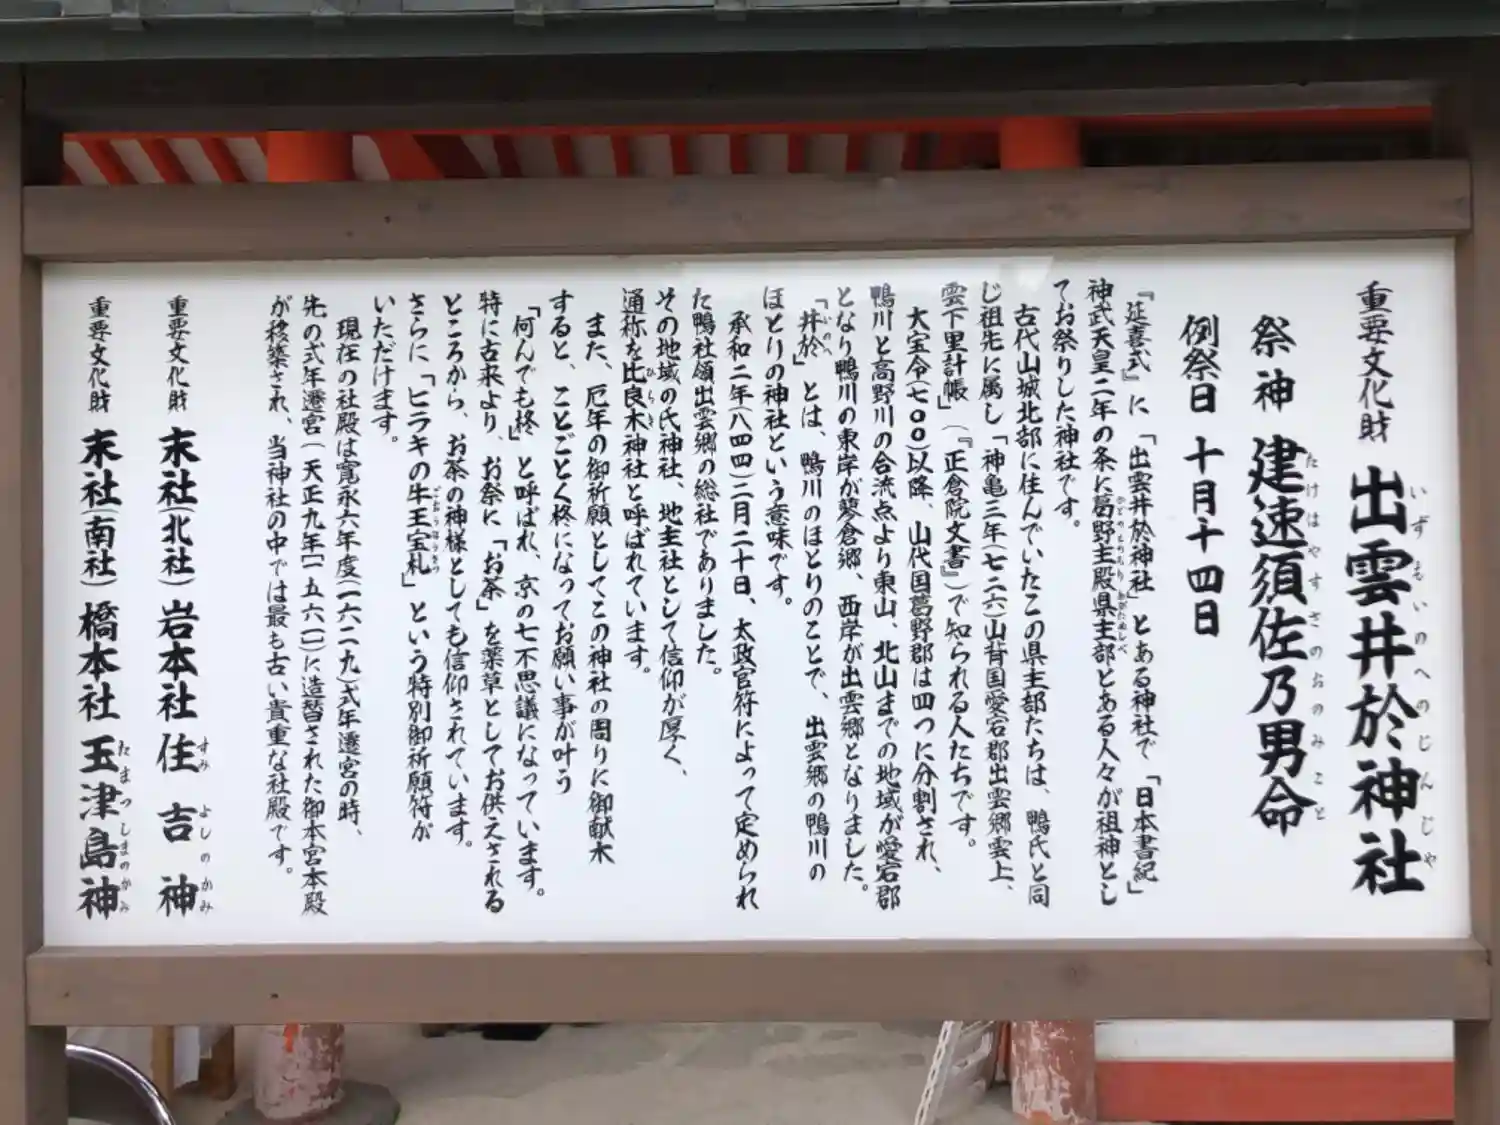 重要文化財 出雲井於神社
いずもいのへのじんじゃ
祭神 建速須佐乃男命
たけはやすさのおのみこと
例祭日 十月十四日
『延喜式』に「出雲井於神社」とある神社で「日本書紀」
神武天皇二年の条に葛野主殿県主部とある人々が祖神とし
かどのとのもりあがたぬしべ
てお祭りした神社です。
古代山城北部に住んでいたこの県主部たちは、鴨氏と同
じ祖先に属し「神亀三年(七二六)山背国愛宕郡出雲郷雲上、
雲下里計帳」(『正倉院文書』)で知られる人たちです。
大宝令(七〇〇)以降、山代国葛野郡は四つに分割され、
鴨川と高野川の合流点より東山、北山までの地域が愛宕郡
となり鴨川の東岸が蓼倉郷、西岸が出雲郷となりました。
「井於」とは、鴨川のほとりのことで、出雲郷の鴨川の
いのへ
ほとりの神社という意味です。
承和二年(八四四)二月二十日、太政官符によって定められ
た鴨社領出雲郷の総社でありました。
その地域の氏神社、地主社として信仰が厚く、
通称を比良木神社と呼ばれています。
ひらき
また、厄年の御祈願としてこの神社の周りに御献木
すると、ことごとく柊になってお願い事が叶う
「何んでも柊」と呼ばれ、京の七不思議になっています。
特に古来より、お祭に「お茶」を薬草としてお供えされる
ところから、お茶の神様としても信仰されています。
さらに「ヒラキの牛王宝札」という特別御祈願符が
ごおうほうさつ
いただけます。
現在の社殿は寛永六年度(一六二九)式年遷宮の時、
先の式年遷宮(天正九年[一五八一])に造替された御本宮本殿
が移築され、当神社の中では最も古い貴重な社殿です。
重要文化財 末社(北社) 岩本社 住吉神
すみよしのかみ
重要文化財 末社(南社) 橋本社 玉津島神
たまつしまのかみ